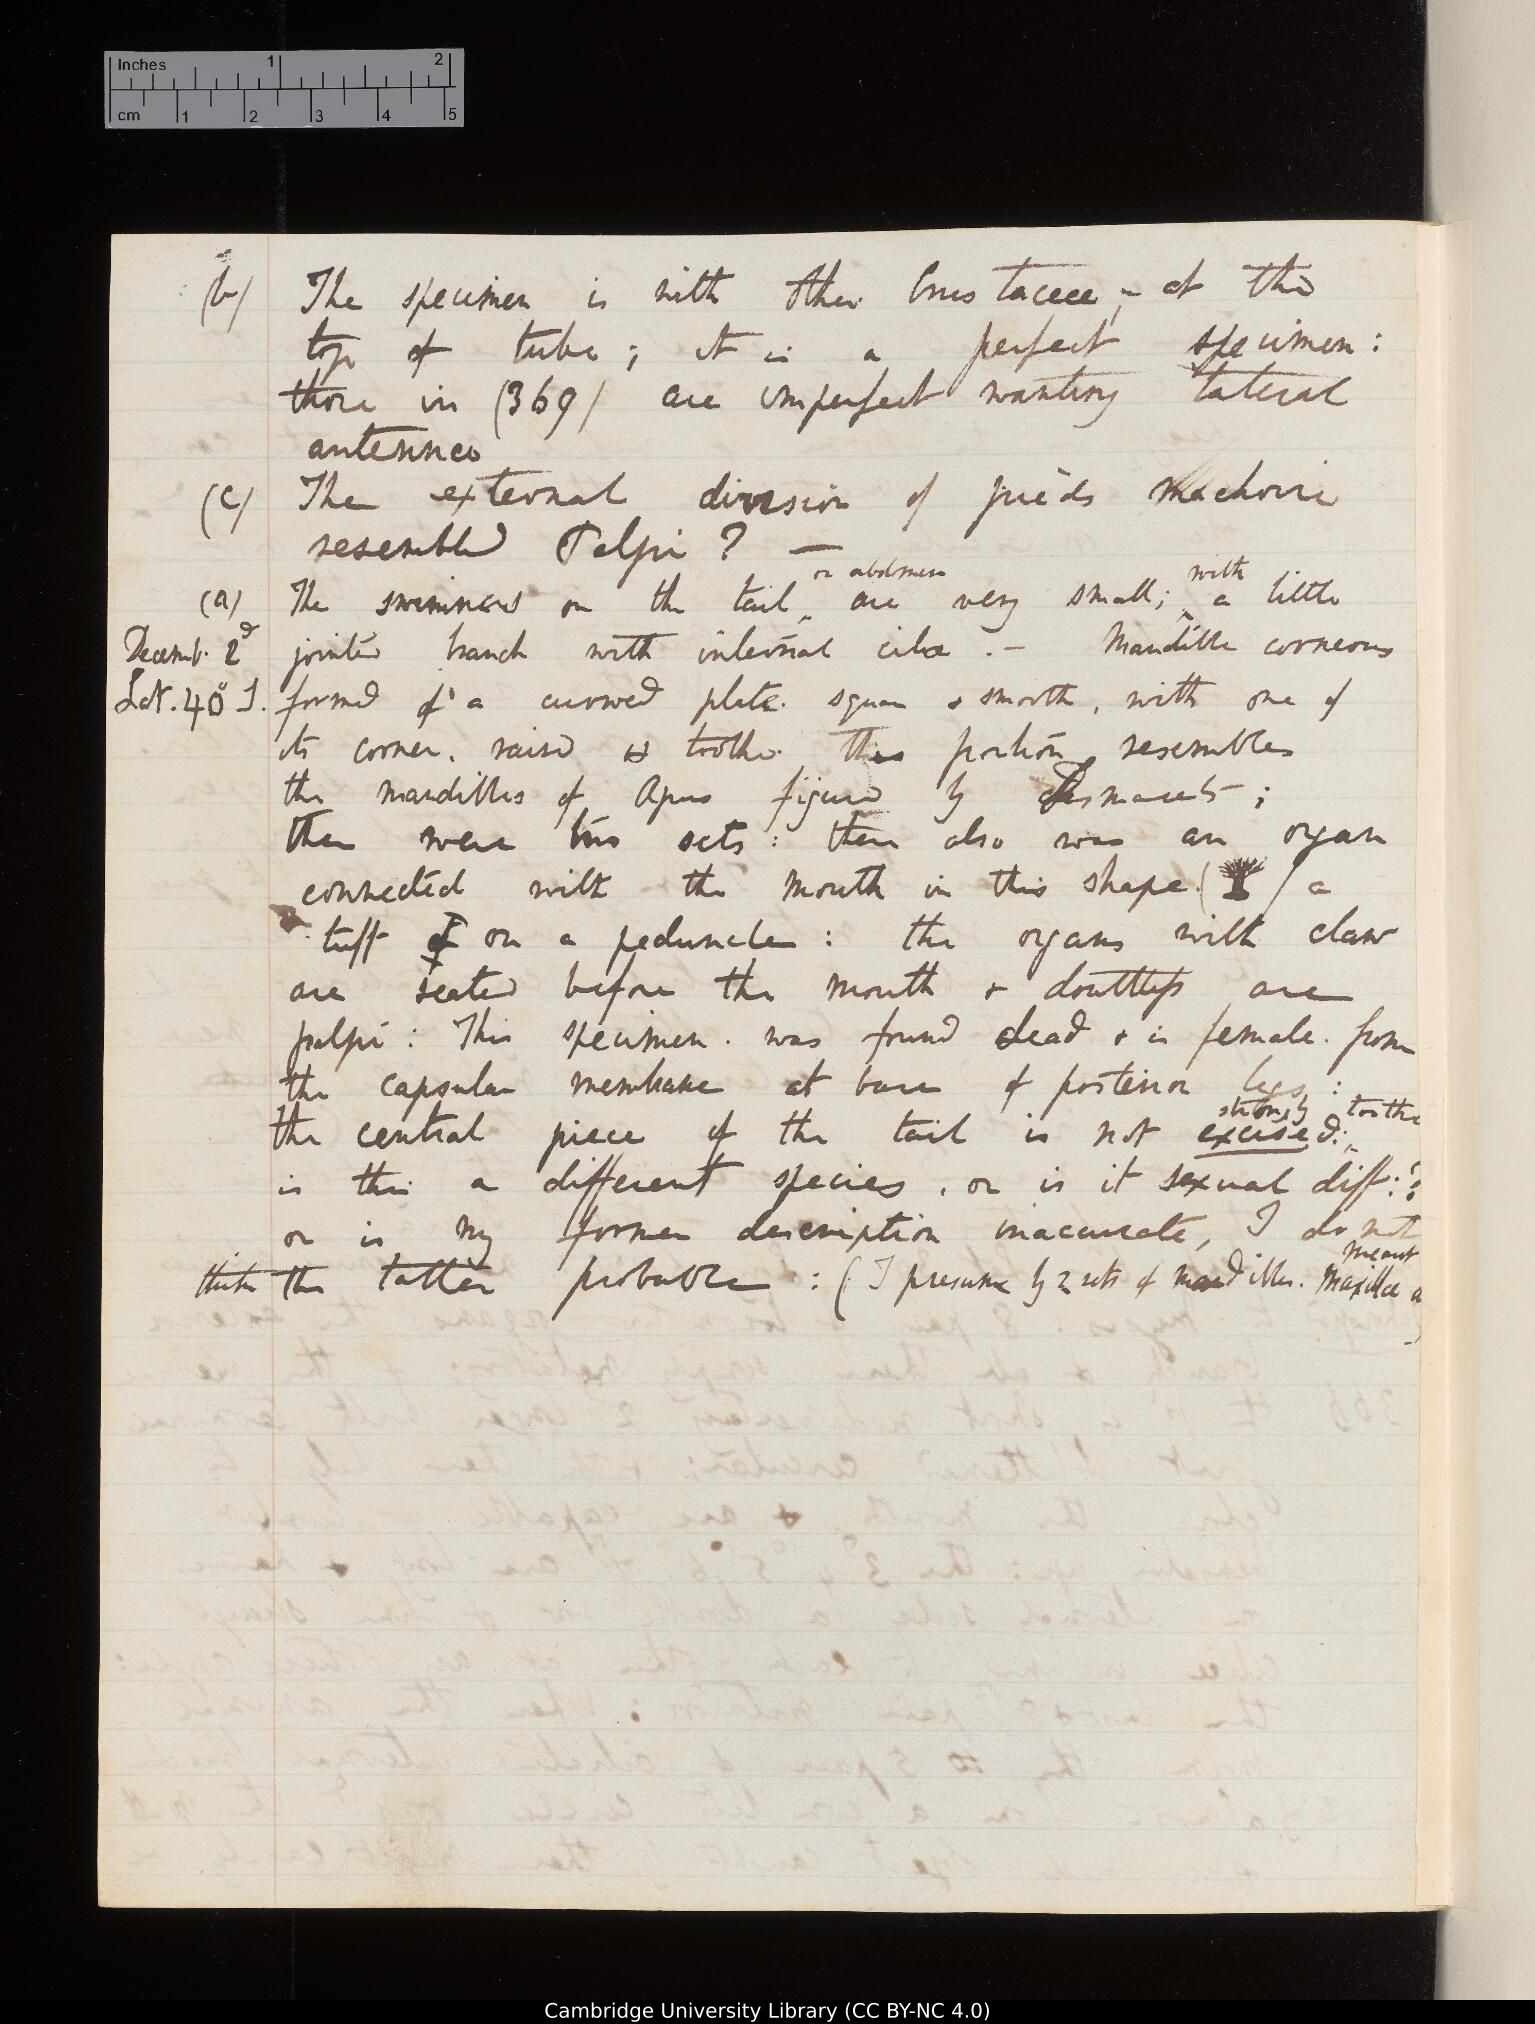 Inches 1 2
cm 1 2 3 4 5
(b) The specimen is with other Crustaceæ, - at the
top of tube; it is a perfect specimen:
those in (369) are imperfect wanting lateral
antennæ
(c) The external division of pièds machoire
resembled Palpi? —
or abdomen with
(a) The swimmers on the tail are very small; a little
Decemb. 2d jointed branch with internal cilæ. — Mandible corneous
Lat. 40° S. formed of a curved plate square & smooth, with one of
its corner. raised & toothed this portion resembles
the mandibles of Apus figured by Desmarest;
there were two sets: there also was an organ
connected with the mouth in this shape ( ) a
tuff on a peduncle: the organs with claw
are seated before the mouth & doubtless are
palpi: This specimen. was found dead & is female. from
the capsular membrane at base of posterior legs:
strongly toothed
the central piece of the tail is not excised:
is this a different species, or is it sexual diff:?
or is my former description inaccurate, I do not
meant
think the latter probable: (I presume by 2 sets of mandibles. Maxillæ
Cambridge University Library (CC BY-NC 4.0)